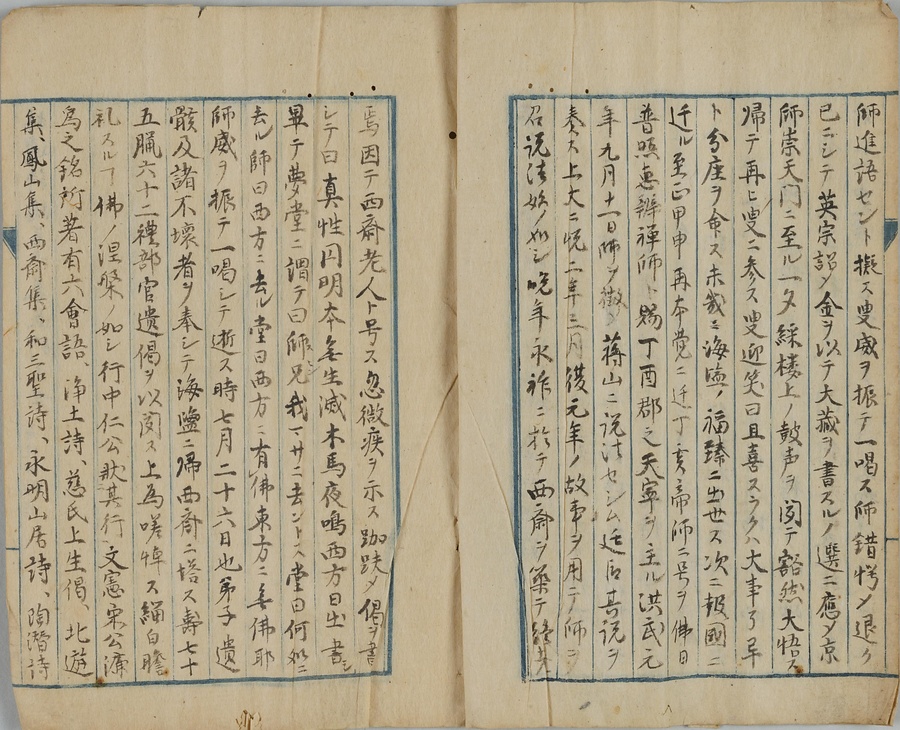 師進語セント擬ス叟威ヲ振テ一喝ス師錯愕メ退ク
已ニシテ英宗詔メ金ヲ以テ大藏ヲ書スルノ選ニ應メ京
師崇天門ニ至ル一夕綵楼上ノ鼓声ヲ闻テ豁然大悟ス
帰テ再ヒ叟ニ参ス叟迎笑曰且喜スラクハ大事了畢
ト分座ヲ命ス未幾ニ海塩ノ福臻ニ出世ス次ニ報國ニ
迁ル至正甲申再本覺ニ迁丁亥帝師ニ号ヲ佛日
普照惠辨禅師ト賜丁酉郡之天寧ヲ主ル洪武元
年九月十一日師ヲ徴メ蒋山ニ説法セシム廷臣其説ヲ
奏ス上大ニ悦二年三月復元年ノ故事ヲ用テ師ヲ
召説法始ノ如シ晩年永祚ニ於テ西齋ヲ築テ終
焉因テ西齋老人ト号ス忽微疾ヲ示ス跏趺メ偈ヲ書
シテ曰真性円明本無生滅木馬夜鳴西方日出書
畢テ夢堂ニ謂テ曰師兄我マサニ去ントス堂曰何処ニ
去ル師曰西方ニ去ル堂曰西方ニ有佛東方ニ無佛耶
師威ヲ振テ一喝シテ逝ス時七月二十六日也弟子遺
骸及諸不壞者ヲ奉シテ海鹽ニ帰西齋ニ塔ス壽七十
五臘六十二禮部官遺偈ヲ以闻ス上為嗟悼ス緇白瞻
礼スルヿ佛ノ涅槃ノ如シ行中仁公狀其行文憲宋公濂
為之銘所著有六會語、浄土詩、慈氏上生偈、北遊
集、鳳山集、西齋集、和三聖詩、永明山居詩、陶潜詩